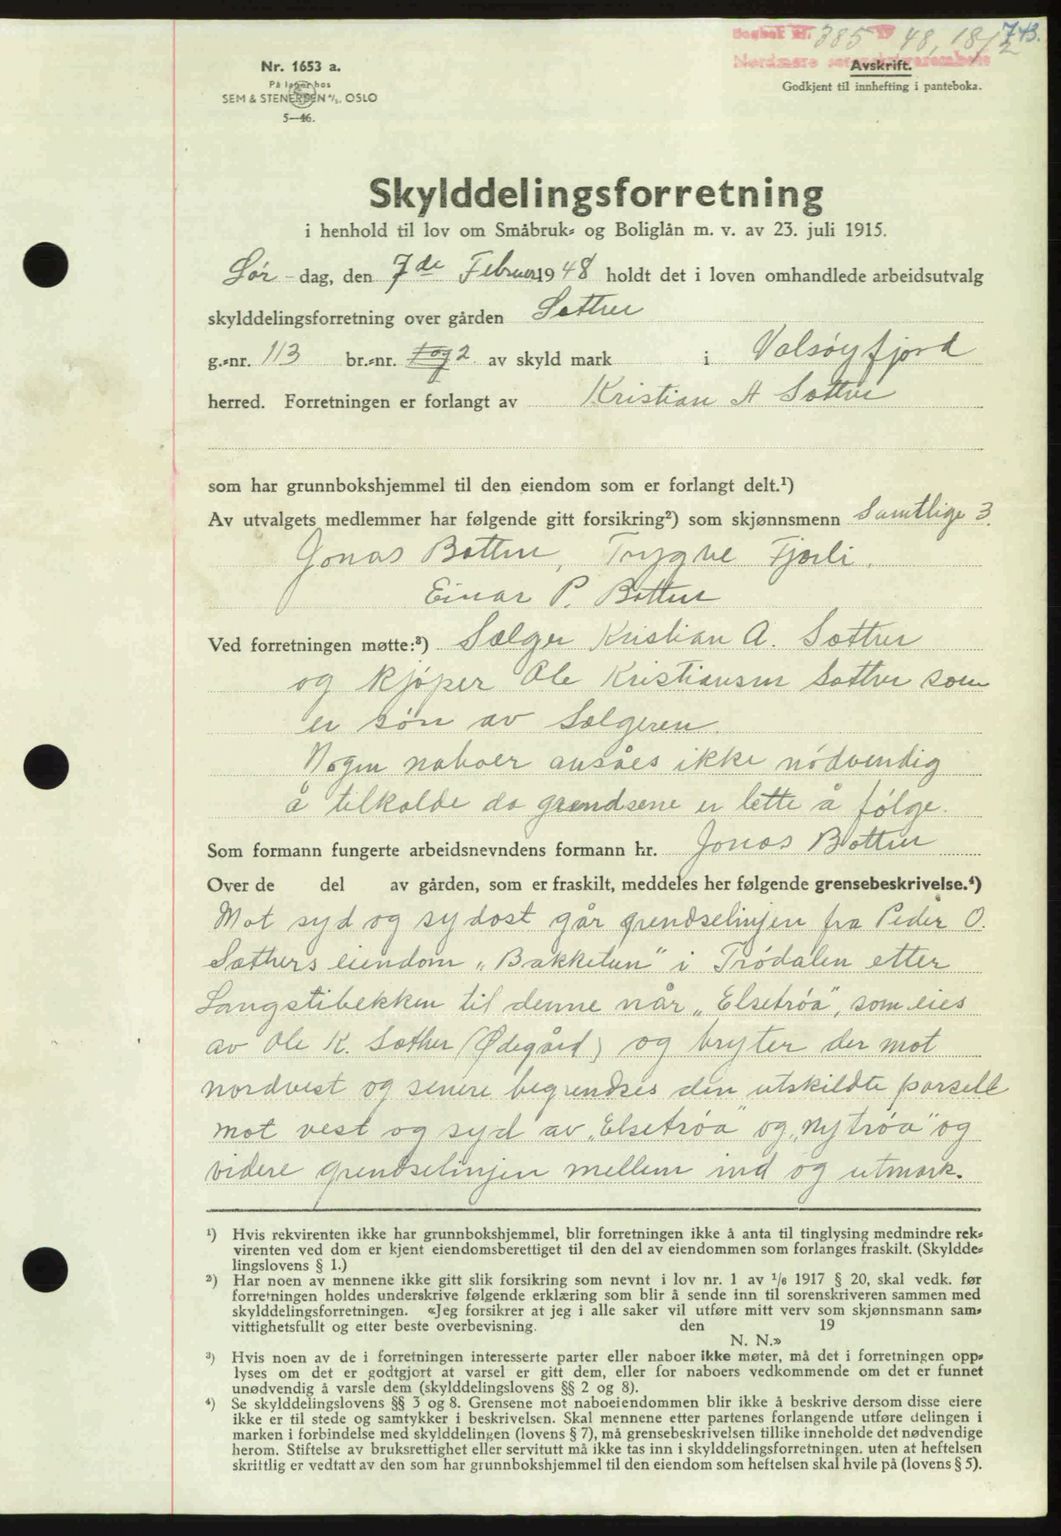 Dagbok nr. 385 19 48, 18/2 743.
Nordmøre sorenskriverembete
Nr. 1653 a.
Avskrift.
På lager hos
Godkjent til innhefting i panteboka.
SEM & STENERSEN A/S. OSLO
5—46.
Skylddelingsforretning
i henhold til lov om Småbruk- og Boliglån m. v. av 23. juli 1915.
Lør-dag, den 7de Februar 1948 holdt det i loven omhandlede arbeidsutvalg
skylddelingsforretning over gården Sæther
g.-nr. 113 br.-nr. 1 og 2 av skyld mark i Valsøyfjord
herred. Forretningen er forlangt av Kristian A Sæther
som har grunnbokshjemmel til den eiendom som er forlangt delt.¹)
Av utvalgets medlemmer har følgende gitt forsikring²) som skjønnsmenn Samtlige 3.
Jonas Botten, Trygve Fjærli.
Einar P. Botten
Ved forretningen møtte:³) Sælger Kristian A. Sæther
og kjøper Ole Kristiansen Sæther som
er søn av Sælgeren.
Nogen naboer ansåes ikke nødvendig
å tilkalde da grændsene er lette å følge.
Som formann fungerte arbeidsnevndens formann hr. Jonas Botten
Over de del av gården, som er fraskilt, meddeles her følgende grensebeskrivelse.⁴)
Mot syd og sydost går grendselinjen fra Peder O.
Sæthers eiendom „Bakketun" i Trødalen etter
Langstibekken til denne når „Elsetrøa", som eies
av Ole K. Sæther (Ødegård) og bryter der mot
nordvest og senere begrendses den utskildte parsell
mot vest og syd av „Elsetrøa" og „Nytrøa" og
videre grendselinjen mellem ind og utmark.
¹) Hvis rekvirenten ikke har grunnbokshjemmel, blir forretningen ikke å anta til tinglysing medmindre rek-
virenten ved dom er kjent eiendomsberettiget til den del av eiendommen som forlanges fraskilt. (Skyldde-
lingslovens § 1.)
²) Har noen av mennene ikke gitt slik forsikring som nevnt i lov nr. 1 av 1/6 1917 § 20, skal vedk. før
forretningen holdes underskrive følgende erklæring som blir å sende inn til sorenskriveren sammen med
skylddelingsforretningen. «Jeg forsikrer at jeg i alle saker vil utføre mitt verv som skjønnsmann sam-
vittighetsfullt og etter beste overbevisning. den 19
N. N.»
³) Hvis noen av de i forretningen interesserte parter eller naboer ikke møter, må det i forretningen opp-
lyses om det er godtgjort at varsel er gitt dem, eller for naboers vedkommende om det er funnet
unødvendig å varsle dem (skylddelingslovens §§ 2 og 8).
⁴) Se skylddelingslovens §§ 3 og 8. Grensene mot naboeiendommen blir ikke å beskrive dersom disse eiere
ikke er til stede og samtykker i beskrivelsen. Skal mennene etter partenes forlangende utføre delingen i
marken i forbindelse med skylddelingen (lovens § 7), må grensebeskrivelsen tillike inneholde det nødvendige
herom. Stiftelse av bruksrettighet eller servitutt må ikke tas inn i skylddelingsforretningen, uten at heftelsen
skriftlig er vedtatt av den som har grunnbokshjemmel til den eiendom som heftelsen skal hvile på (lovens § 5).